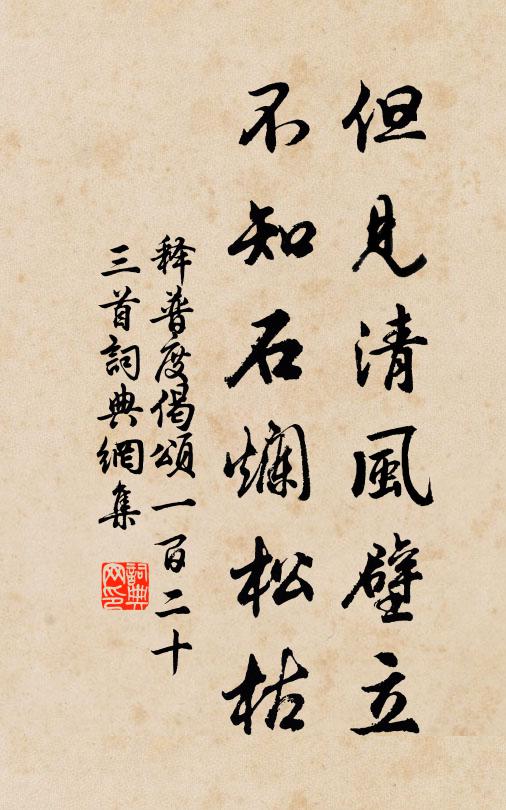 但見清風壁立
不知石爛松枯
释普度偈頌一百二十
三首詞典網集
詞典
网印